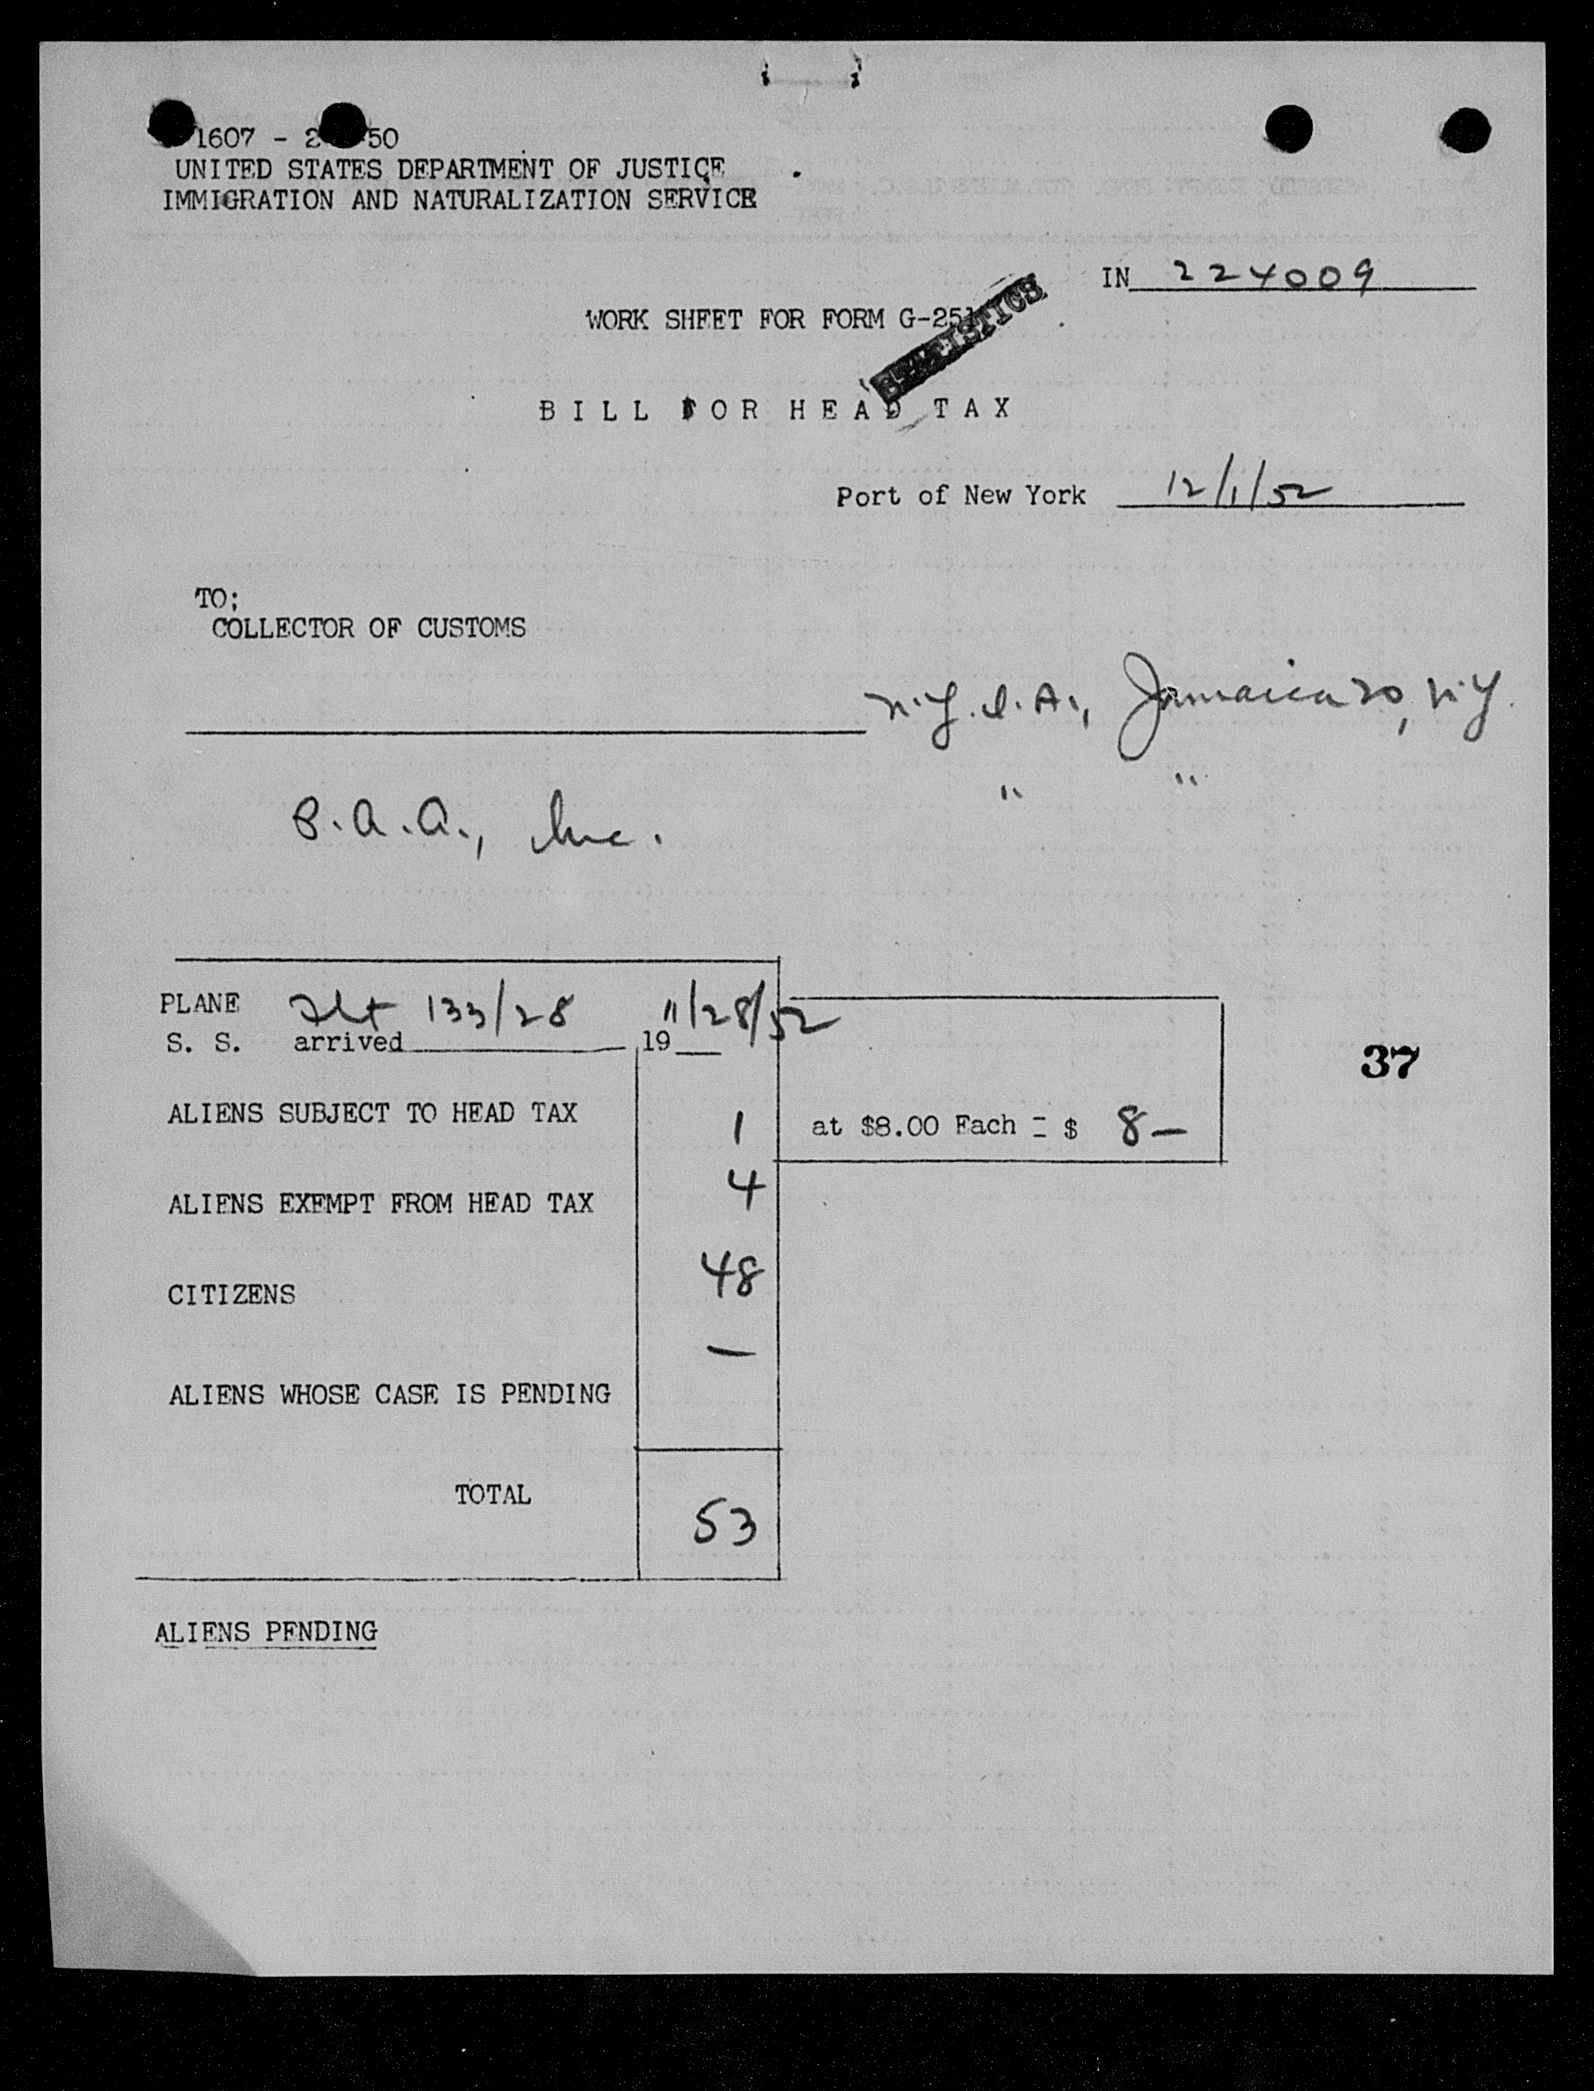 1607 - 2 50
UNITED STATES DEPARTMENT OF JUSTICE
IMMIGRATION AND NATURALIZATION SERVICE
IN 224009
WORK SHEET FOR FORM G-251
STATISTICS
BILL FOR HEAD TAX
Port of New York 12/1/52
TO:
COLLECTOR OF CUSTOMS
N.Y.I.A., Jamaica 30, N.Y.
" "
P.A.A., Inc.
PLANE Flt 133/28 11/28/52
S. S. arrived 19
37
ALIENS SUBJECT TO HEAD TAX 1 at $8.00 Each = $ 8—
ALIENS EXEMPT FROM HEAD TAX 4
CITIZENS 48
ALIENS WHOSE CASE IS PENDING —
TOTAL 53
ALIENS PENDING